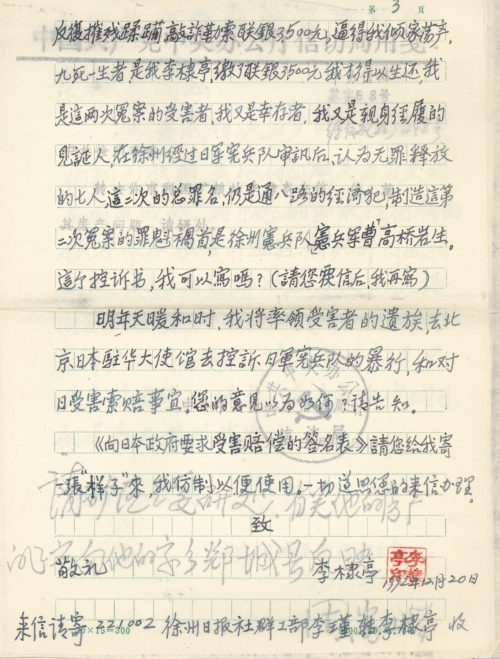 第 3 页
反復摧残蹂躏敲詐勒索联銀3500元,逼得我倾家荡产,
九死一生者,是我李棣亭,缴了联銀3500元我才得以生还,我
是這两次冤案的受害者,我又是幸存者,我又是親身经歷的
見証人,在徐州经过日军宪兵队审訊后,认为无罪释放
的七人這二次的总罪名,仍是通八路的经济犯,制造這第
二次冤案的罪魁禍首是徐州憲兵队憲兵軍曹高桥岩生。
這个控诉书,我可以寫嗎?(請您來信后,我再寫)
明年天暖和时,我将率领受害者的遗族,去北
京日本駐华大使馆去控訴日軍宪兵队的暴行,和对
日受害索賠事宜,您的意見以为如何?请告知。
《向日本政府要求受害赔偿的签名表》請您给我寄
一張"样子"來,我仿制以便使用。一切遵照您的来信办理。
致
敬礼
李棣亭
1992年12月20日
来信请寄221002徐州日报社群工部李瑾轉李棣亭 收
20×15=300